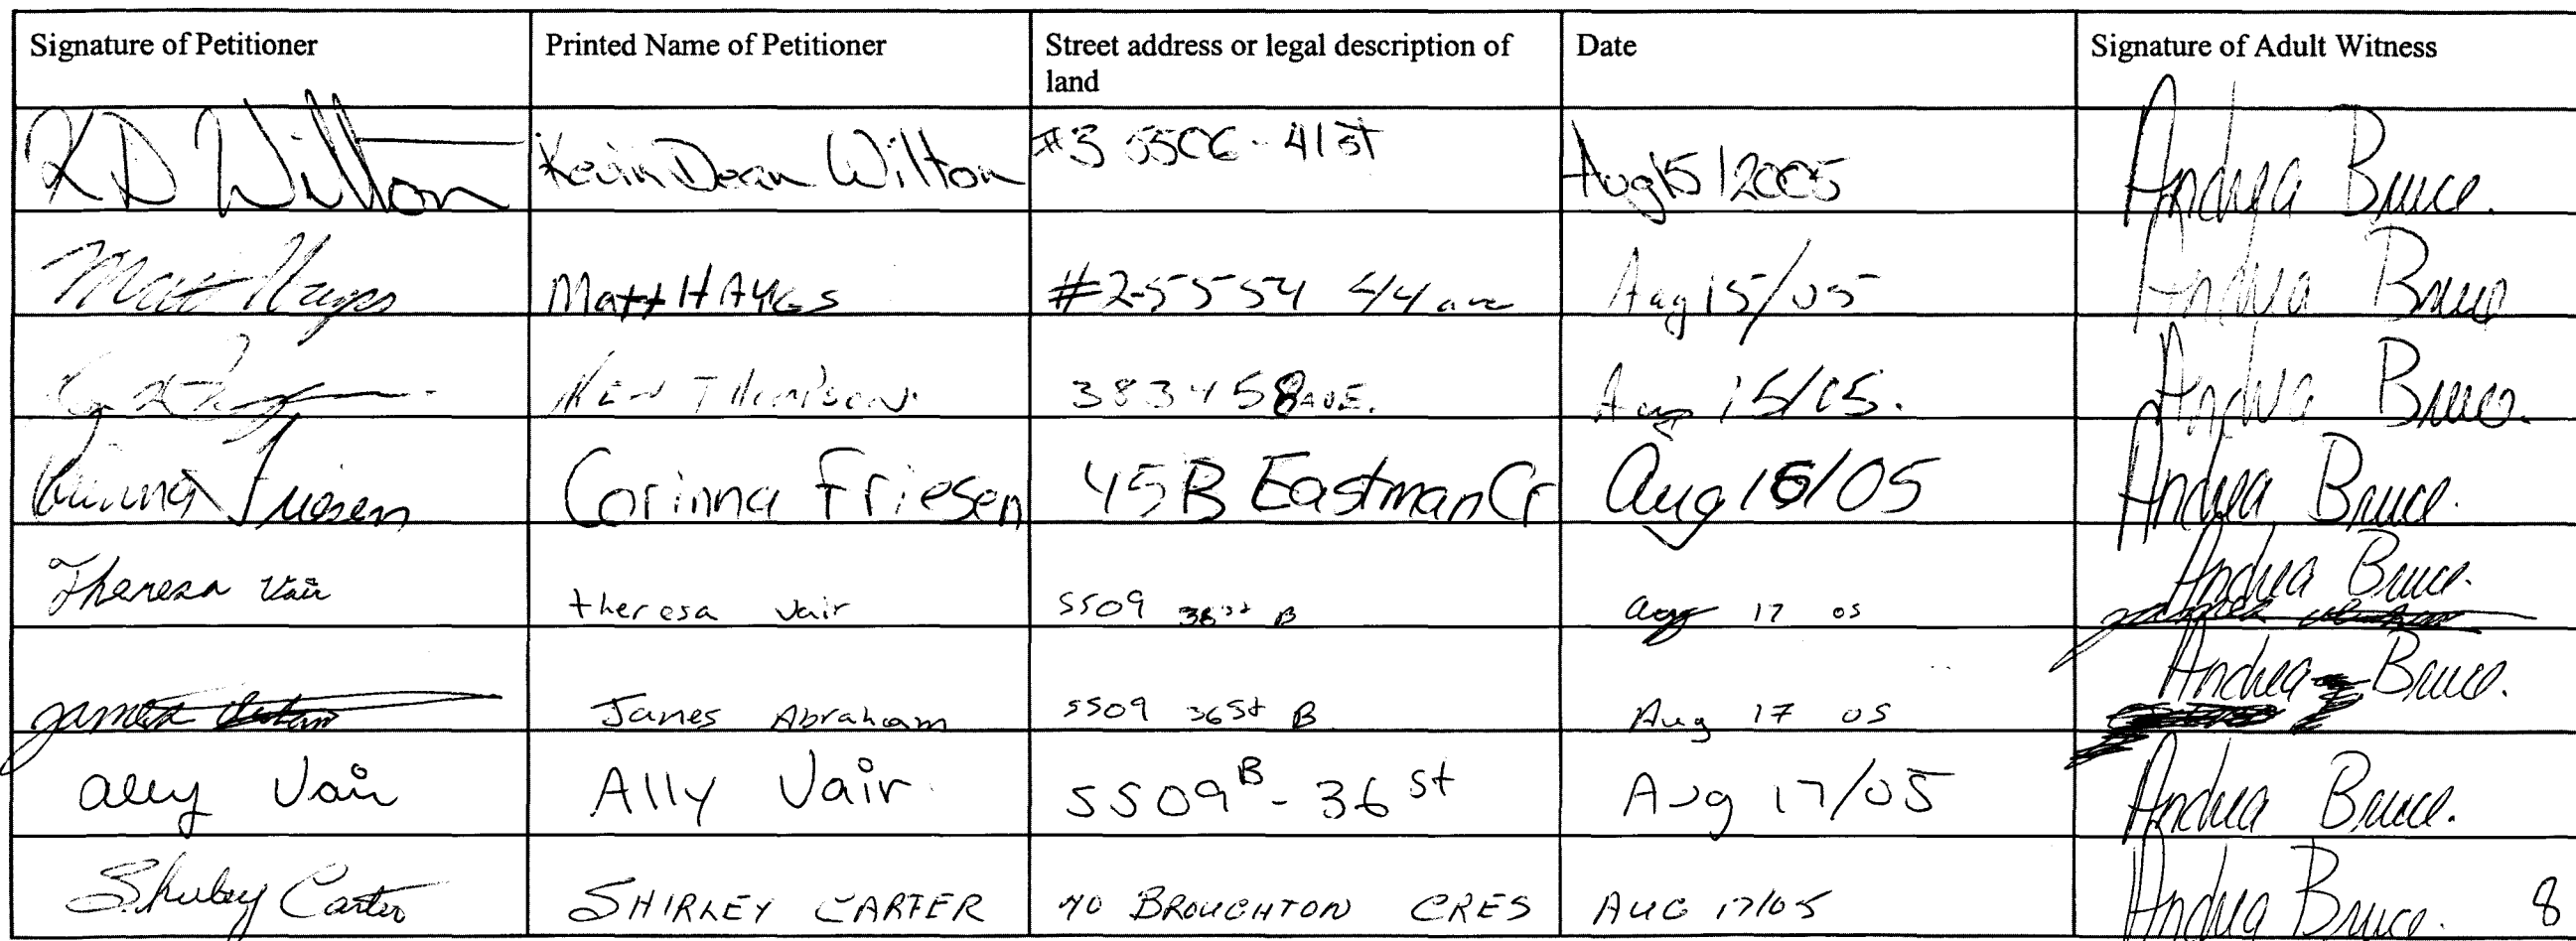 Signature of Petitioner Printed Name of Petitioner Street address or legal description of land Date Signature of Adult Witness
KD Wilton Kevin Dean Wilton #3 5506-41 st Aug 15/2005 Andrea Bruce.
Matt Hayes Matt HAYES #2-5554 44 ave Aug 15/05 Andrea Bruce
KEN THOMPSON. 3834 58 AVE. Aug 15/05. Andrea Bruce.
Corinna Friesen Corinna Friesen 45B Eastman Cr Aug 16/05 Andrea Bruce.
Theresa Vair theresa vair 5509 36 st B aug 17 05 Andrea Bruce.
James James Abraham 5509 36 St B Aug 17 05 Andrea Bruce.
Ally Vair Ally Vair 5509 B - 36 st Aug 17/05 Andrea Bruce.
Shirley Carter SHIRLEY CARTER 70 BROUGHTON CRES AUG 17/05 Andrea Bruce. 8